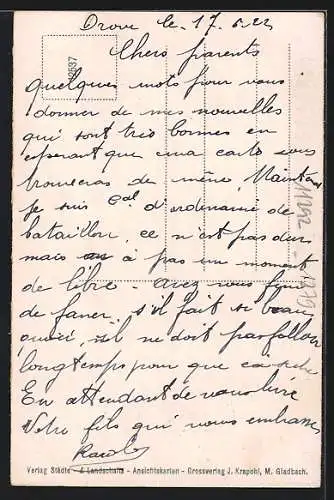 Drove le 17.6.22
Chers parents
quelques mots pour vous
donner de mes nouvelles
qui sont très bonnes en
esperant que ma carte vous
trouveras de même Maintenant
Je suis Cal d'ordinaire de
bataillon ce n'est pas dur
mais on à pas un moment
de libre. avez vous fini
de faner. s'il fait si beau
il ne doit pas falloir
longtemps pour que ça sèche
En attendant de vous lire
Votre fils qui vous embrasse
Verlag Städte- & Landschafts - Ansichtskarten - Crossvering J. Krapohl, M. Gladbach.
11262